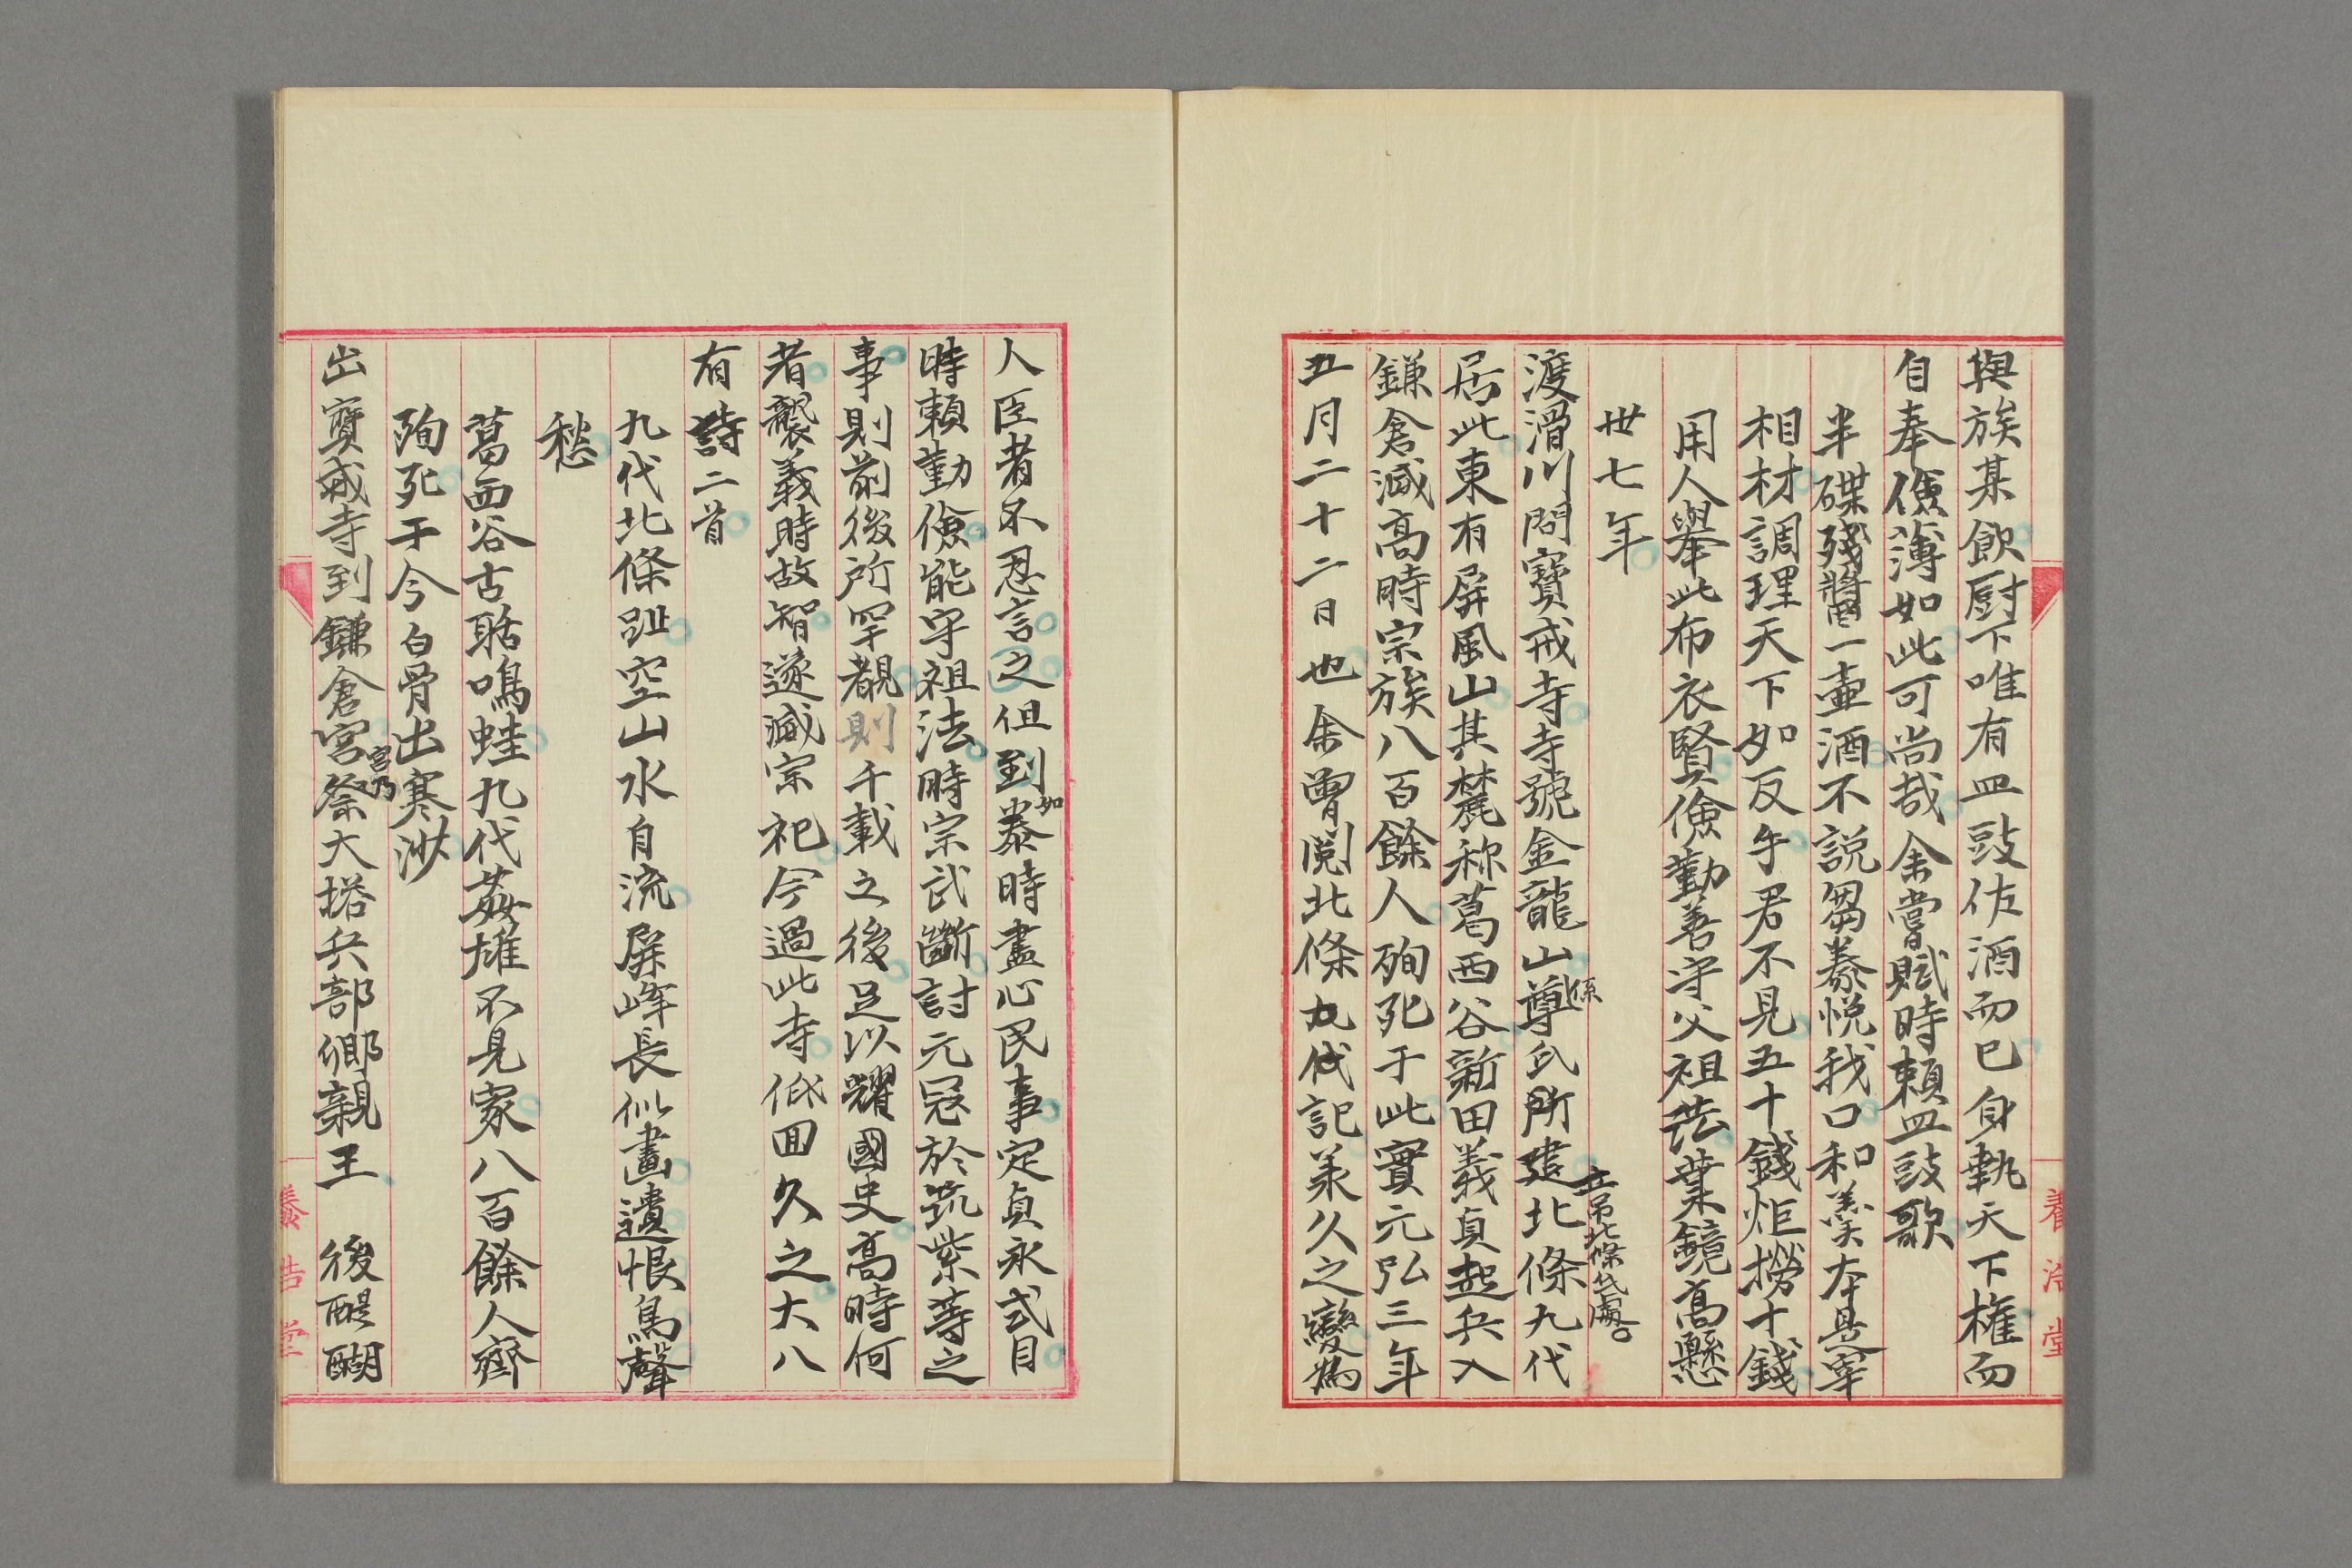 與族某飲厨下唯有皿豉佐酒而已身執天下權而
自奉儉薄如此可尚哉余嘗賦時頼皿豉歌
半碟殘醬一壷酒不説芻豢悦我口和羹本是宰
相材調理天下如反手君不見五十錢炬撈十錢
用人舉此布衣賢儉勤善守父祖法葉鏡高懸
丗七年
渡滑川問寶戒寺寺號金龍山尊氏所建北條九代
係
立吊北條氏處。
居此東有屏風山其麓称葛西谷新田義貞起兵入
鎌倉滅高時宗族八百餘人殉死于此實元弘三年
五月二十二日也余曽閲北條九代記承久之變為
養浩堂
人臣者不忍言之但到泰時盡心民事定貞永式目
如
時頼勤儉能守祖法時宗武斷討元冦於筑紫等之
事則前後所罕覩則千載之後足以耀國史高時何
者襲義時故智遂滅宗祀今過此寺低囬久之大八
有詩二首
九代北條趾空山水自流屏峰長似畫遺恨鳥聲
愁
葛西谷古聒鳴蛙九代姦雄不見家八百餘人齊
殉死于今白骨出寒沙
出寶戒寺到鎌倉宮祭大塔兵部卿親王 後醍醐
宮乃
養浩堂